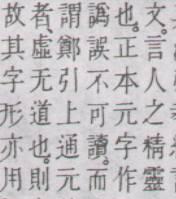 文。言人之精靈
也。正本元字作
譌誤不可讀。而
謂鄭引上通元
者、虛无道也。則
故其字形亦用